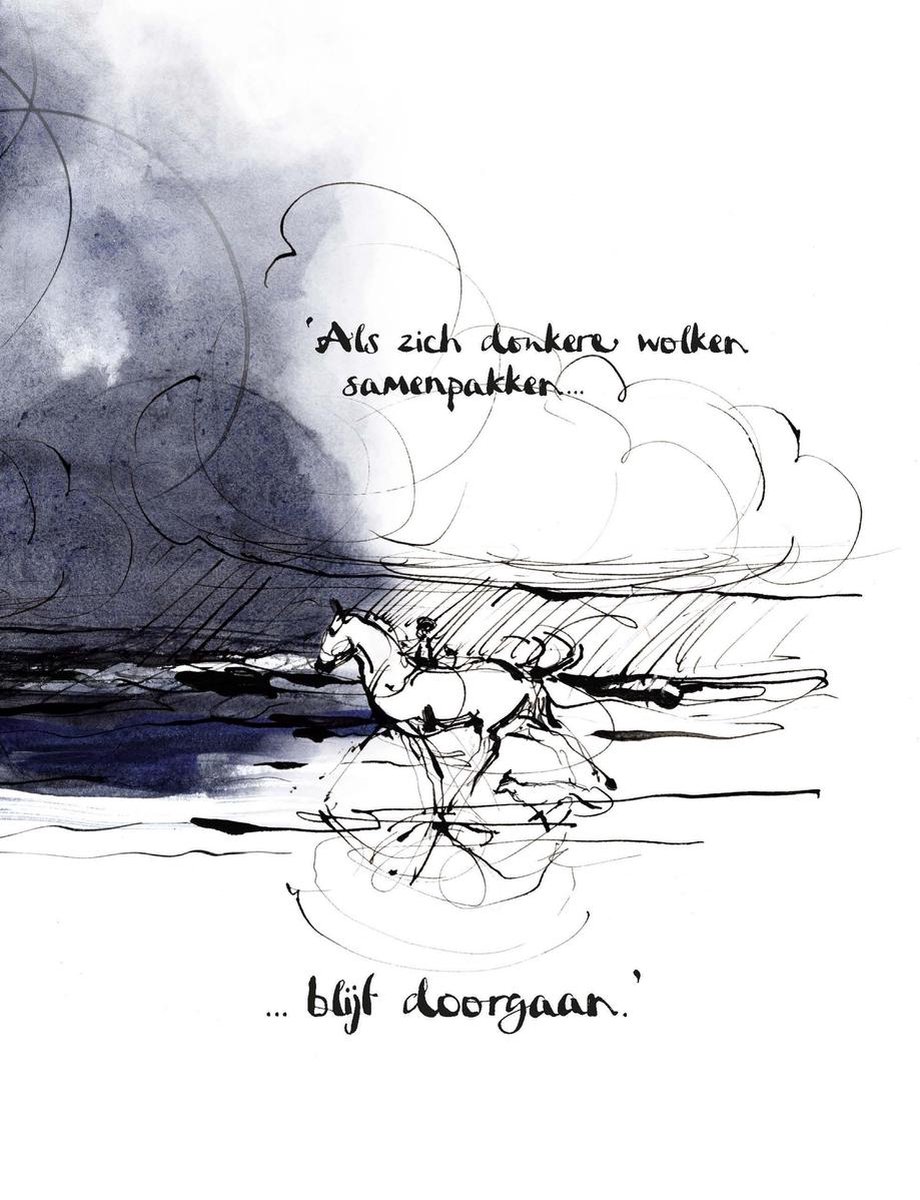 'Als zich donkere wolken
samenpakken...
... blijf doorgaan.'